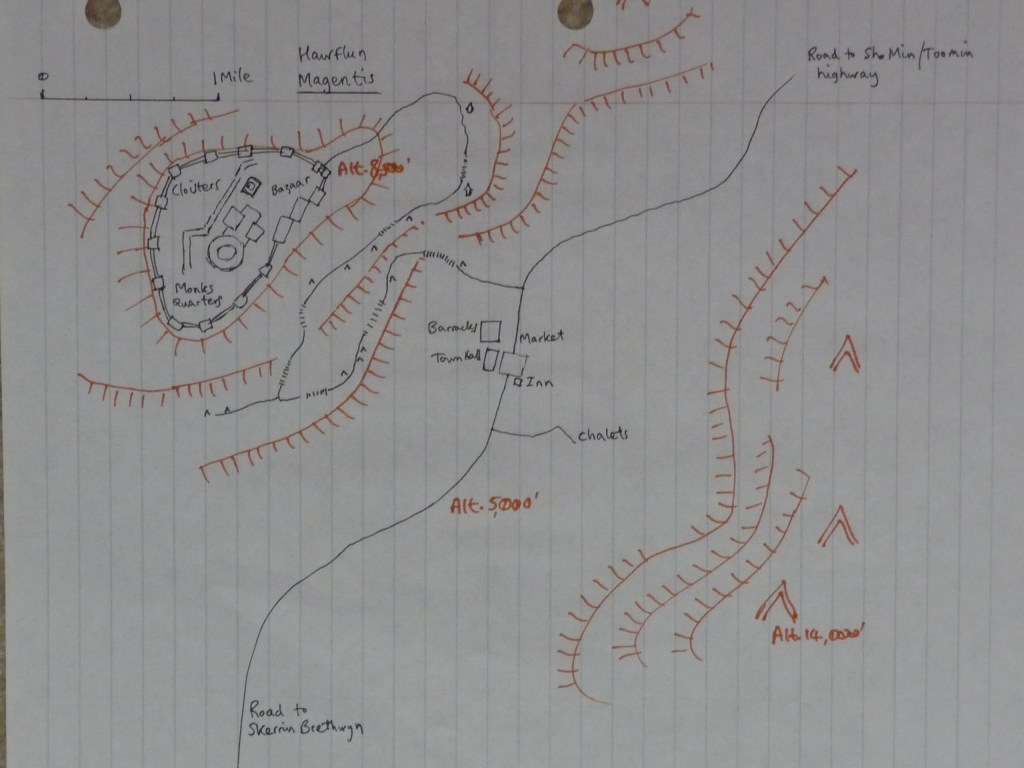 0
1 Mile
Hawrflun
Magentis
Road to Sho Min/Toomin
highway
Alt. 8,500'
Cloüters
Bazaar
Monks
Quarters
Barracks
Market
Town Hall
Inn
chalets
Alt. 5,000'
Alt. 14,000'
Road to
Skerrin Brethwyn